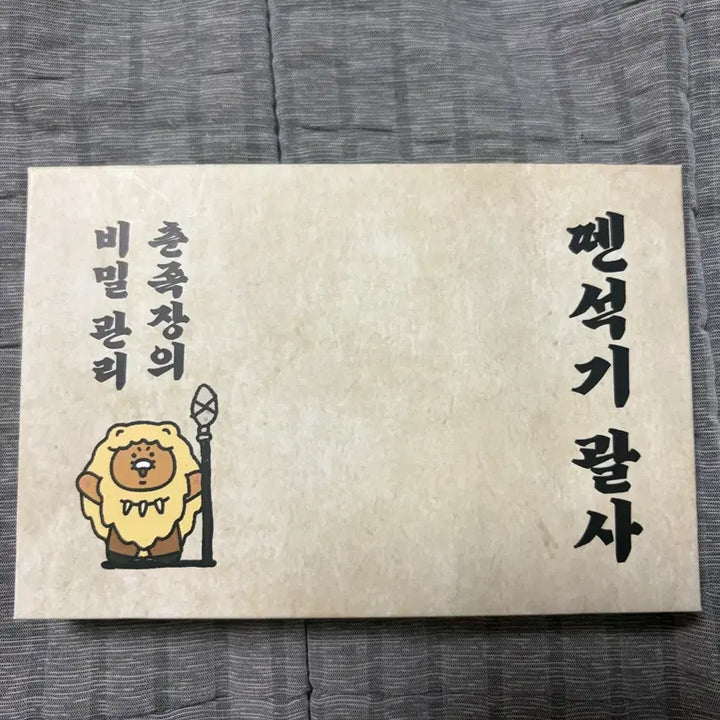 춘족장의
비밀 관리
뗀석기 괄사